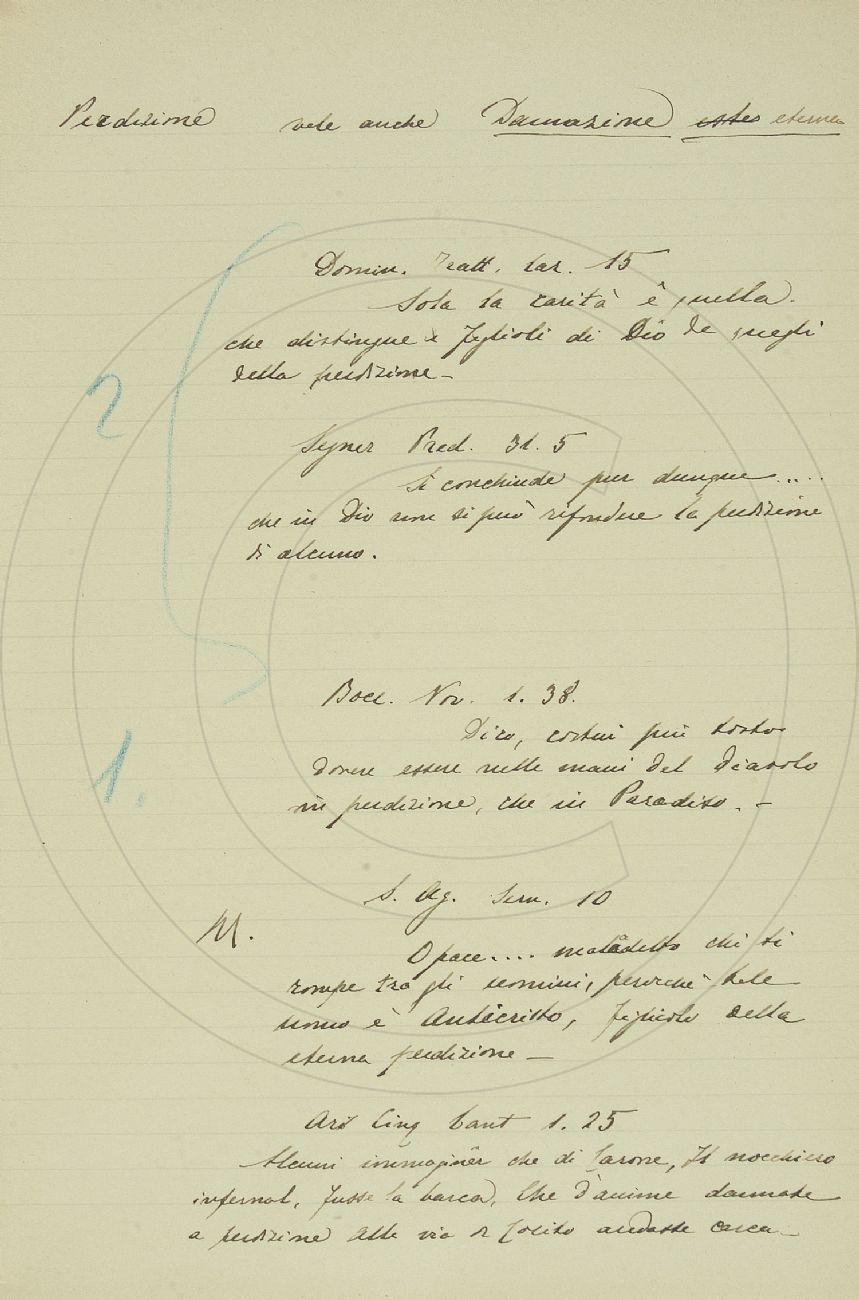 Perdizione vede anche Dannazione eterna
Domin. Tratt. Car. 15
Sola la carità è quella
che distingue i figlioli di Dio da quegli
della perdizione —
Segner Pred. 31. 5
Si conchiude pur dunque .....
che in Dio non si può rifondere la perdizione
di alcuno.
2
Bocc. Nov. 1. 38.
Dico, costui più tosto
dovere essere nelle mani del diavolo
in perdizione, che in Paradiso. —
1.
S. Ag. Serm. 10
M.
O pace .... maladetto chi ti
rompe tra gli uomini, perocchè tale
uomo è Anticristo, figliuolo della
eterna perdizione —
Ari Cinq Cant 1. 25
Alcuni immaginâr che di Carone, Il nocchiero
infernal, fusse la barca, Che d'anime dannate
a perdizione Alla via di Cocito andasse carca —